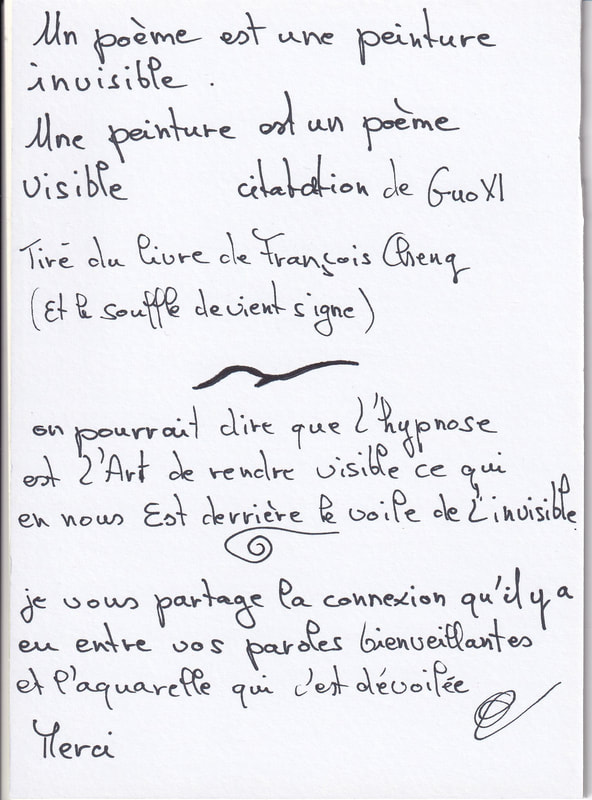 Un poème est une peinture
invisible.
Une peinture est un poème
visible citatation de Guo XI
Tiré du livre de François Cheng
(Et le souffle devient signe)
on pourrait dire que l'hypnose
est l'Art de rendre visible ce qui
en nous Est derrière le voile de l'invisible
je vous partage la connexion qu'il y a
eu entre vos paroles bienveillantes
et l'aquarelle qui c'est dévoilée
Merci